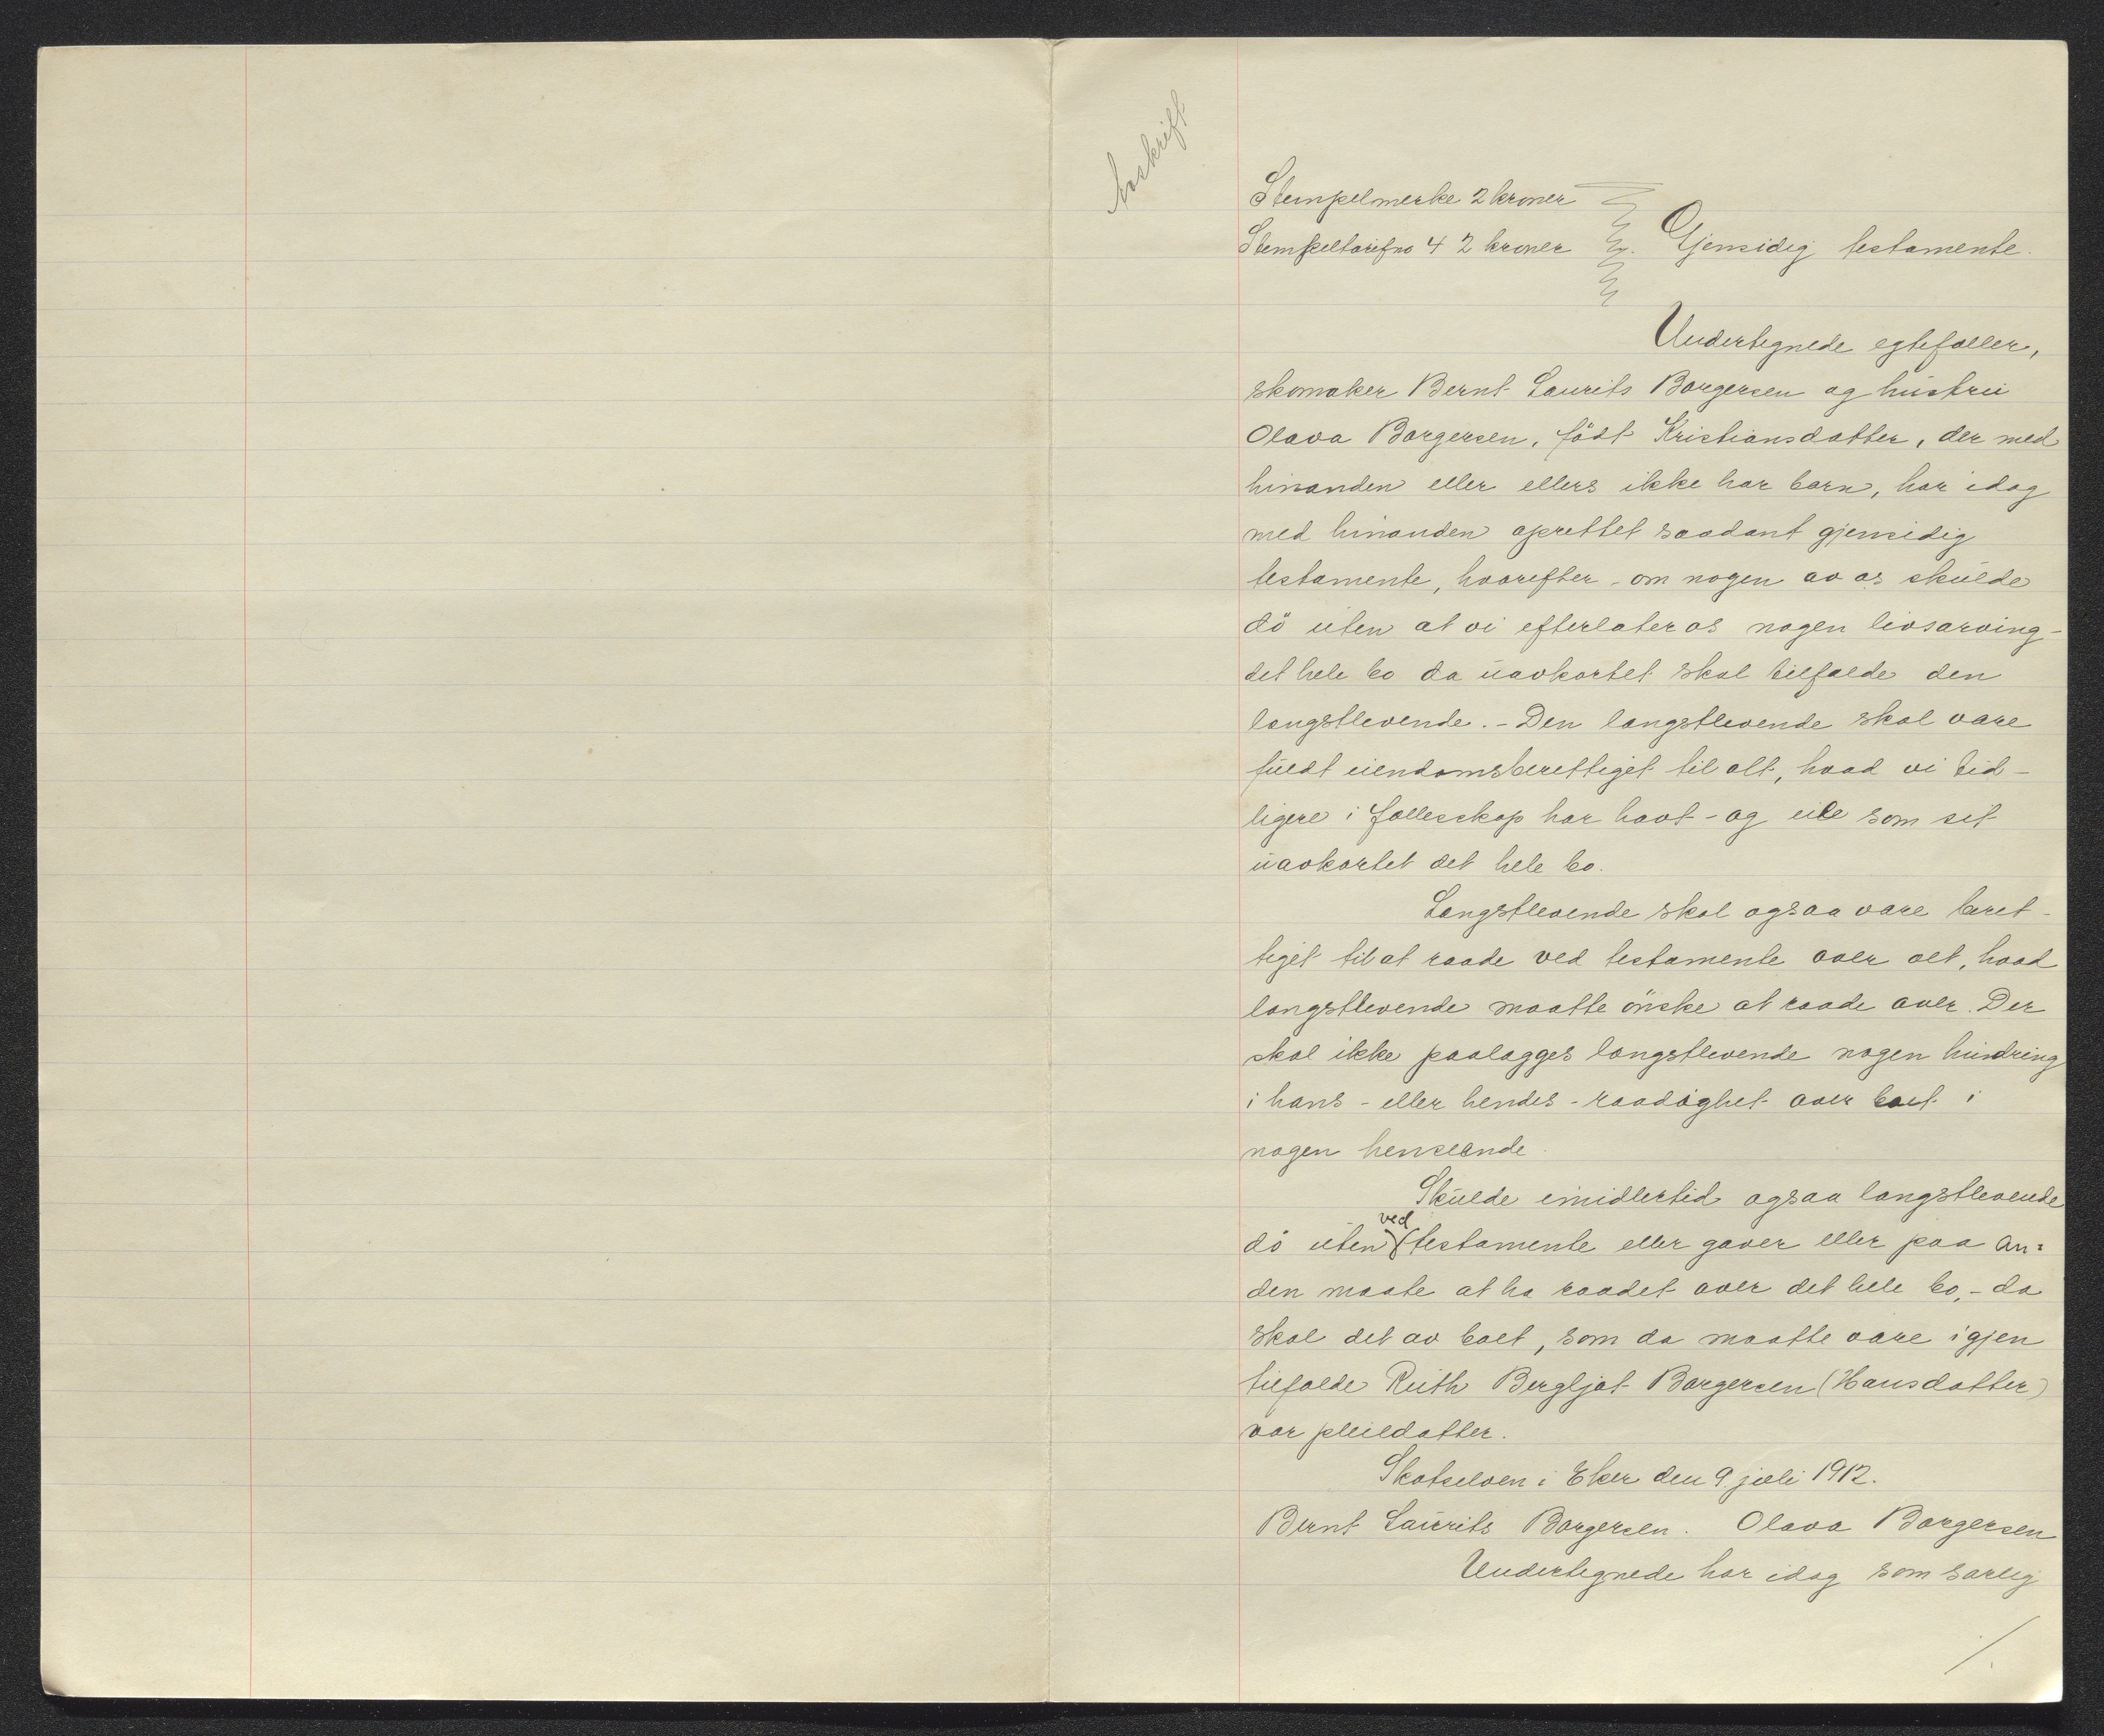 Avskrift
Stempelmerke 2 kroner
Stempeltarifno 4 2 kroner Gjensidig testamente.
Undertegnede egtefæller,
skomaker Bernt Laurits Borgersen og hustru
Olava Borgersen, født Kristiansdatter, der med
hinanden eller ellers ikke har barn, har idag
med hinanden oprettet saadant gjensidig
testamente, hvorefter - om nogen av os skulde
dö uten at vi efterlater os nogen livsarving -
det hele bo da uavkortet skal tilfalde den
længstlevende. - Den længstlevende skal være
fuldt eiendomsberettiget til alt, hvad vi tid-
ligere i fællesskap har havt - og eile som sit
uavkortet det hele bo.
Længstlevende skal ogsaa være beret-
tiget til at raade ved testamente over alt, hvad
længstlevende maatte önske at raade over. Der
skal ikke paalægges længstlevende nogen hindring
i hans - eller hendes - raadighet over boet i
nogen henseende.
Skulde imidlertid ogsaa længstlevende
dö uten ved testamente eller gaver eller paa an=
den maate at ha raadet over det hele bo, - da
skal det av boet, som da maatte være igjen
tilfalde Ruth Bergljot Borgersen (Hansdatter)
vor pleiedatter.
Skotselven i Eker den 9. juli 1912.
Bernt Laurits Borgersen. Olava Borgersen
Undertegnede har idag som særlig
/.